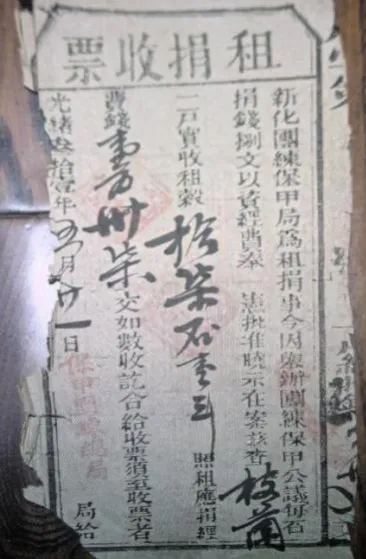 租捐收票
新化團練保甲局爲租捐事今因舉辦團練保甲公議每石
捐錢捌文以資經費奉 憲批准曉示在案茲查 枝
二戶實收租穀 拾柒石壹斗 照租應捐經
費錢 壹百卅柒 文如數收訖合給收票須至收票者
光緒叁拾壹年五月廿一日 局給
保甲 總局